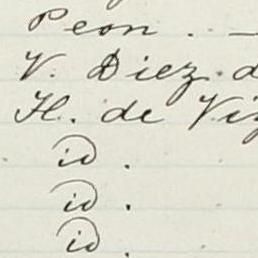 Peon . —
V. Diez d
H. de Viz
id .
id .
id .